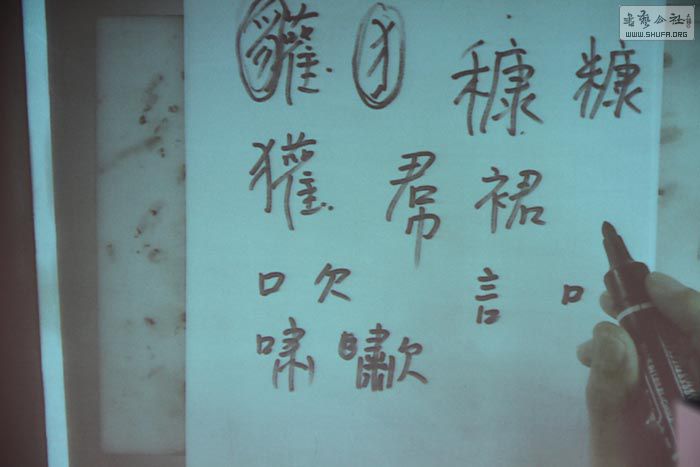 書藝公社
WWW.SHUFA.ORG
貛 犭 穅 糠
獾 帬 裙
口 欠 言 口
啸 歗